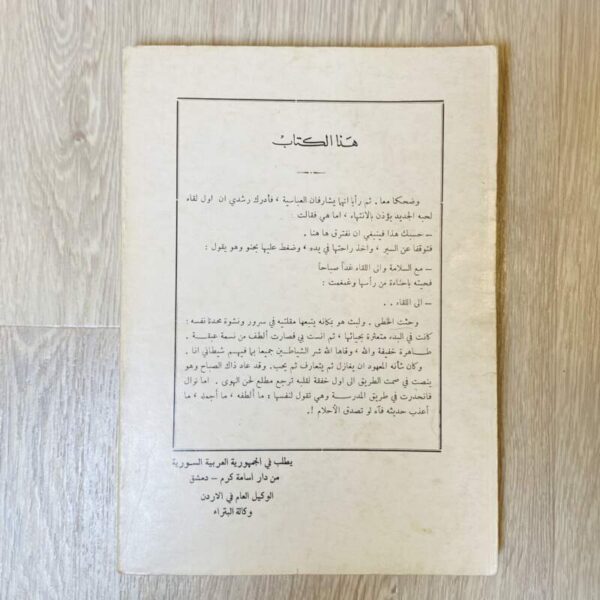 هذا الكتاب
وضحكا معا . ثم رأيا انهما يشارفان العباسية ، فأدرك رشدي ان اول لقاء
لحبه الجديد يؤذن بالانتهاء ، اما هي فقالت :
– حسبك هذا فينبغي ان نفترق ها هنا .
فتوقفا عن السير ، واخذ راحتها في يده ، وضغط عليها بحنو وهو يقول :
– مع السلامة والى اللقاء غداً صباحاً
فحيته بإحناءة من رأسها وغمغمت :
– الى اللقاء . .
وحثت الخطى . ولبث هو بمكانه يتبعها مقلتيه في سرور ونشوة محدثا نفسه :
كانت في البدء متعثرة بحيائها ، ثم انست بي فصارت ألطف من نسمة عبقة
طاهرة خفيفة والله ، وقاها الله شر الشياطين جميعا بما فيهم شيطاني انا .
وكان شأنه المعهود ان يغازل ثم يتعارف ثم يحب . وقد عاد ذاك الصباح وهو
ينصت في صمت الطريق الى اول خفقة لقلبه ترجع مطلع لحن الهوى . اما نوال
فانحدرت في طريق المدرسة وهي تقول لنفسها : ما ألطفه ، ما أجمله ، ما
أعذب حديثه فآه لو تصدق الأحلام !.
يطلب في الجمهورية العربية السورية
من دار اسامة كرم – دمشق
الوكيل العام في الاردن
وكالة البتراء